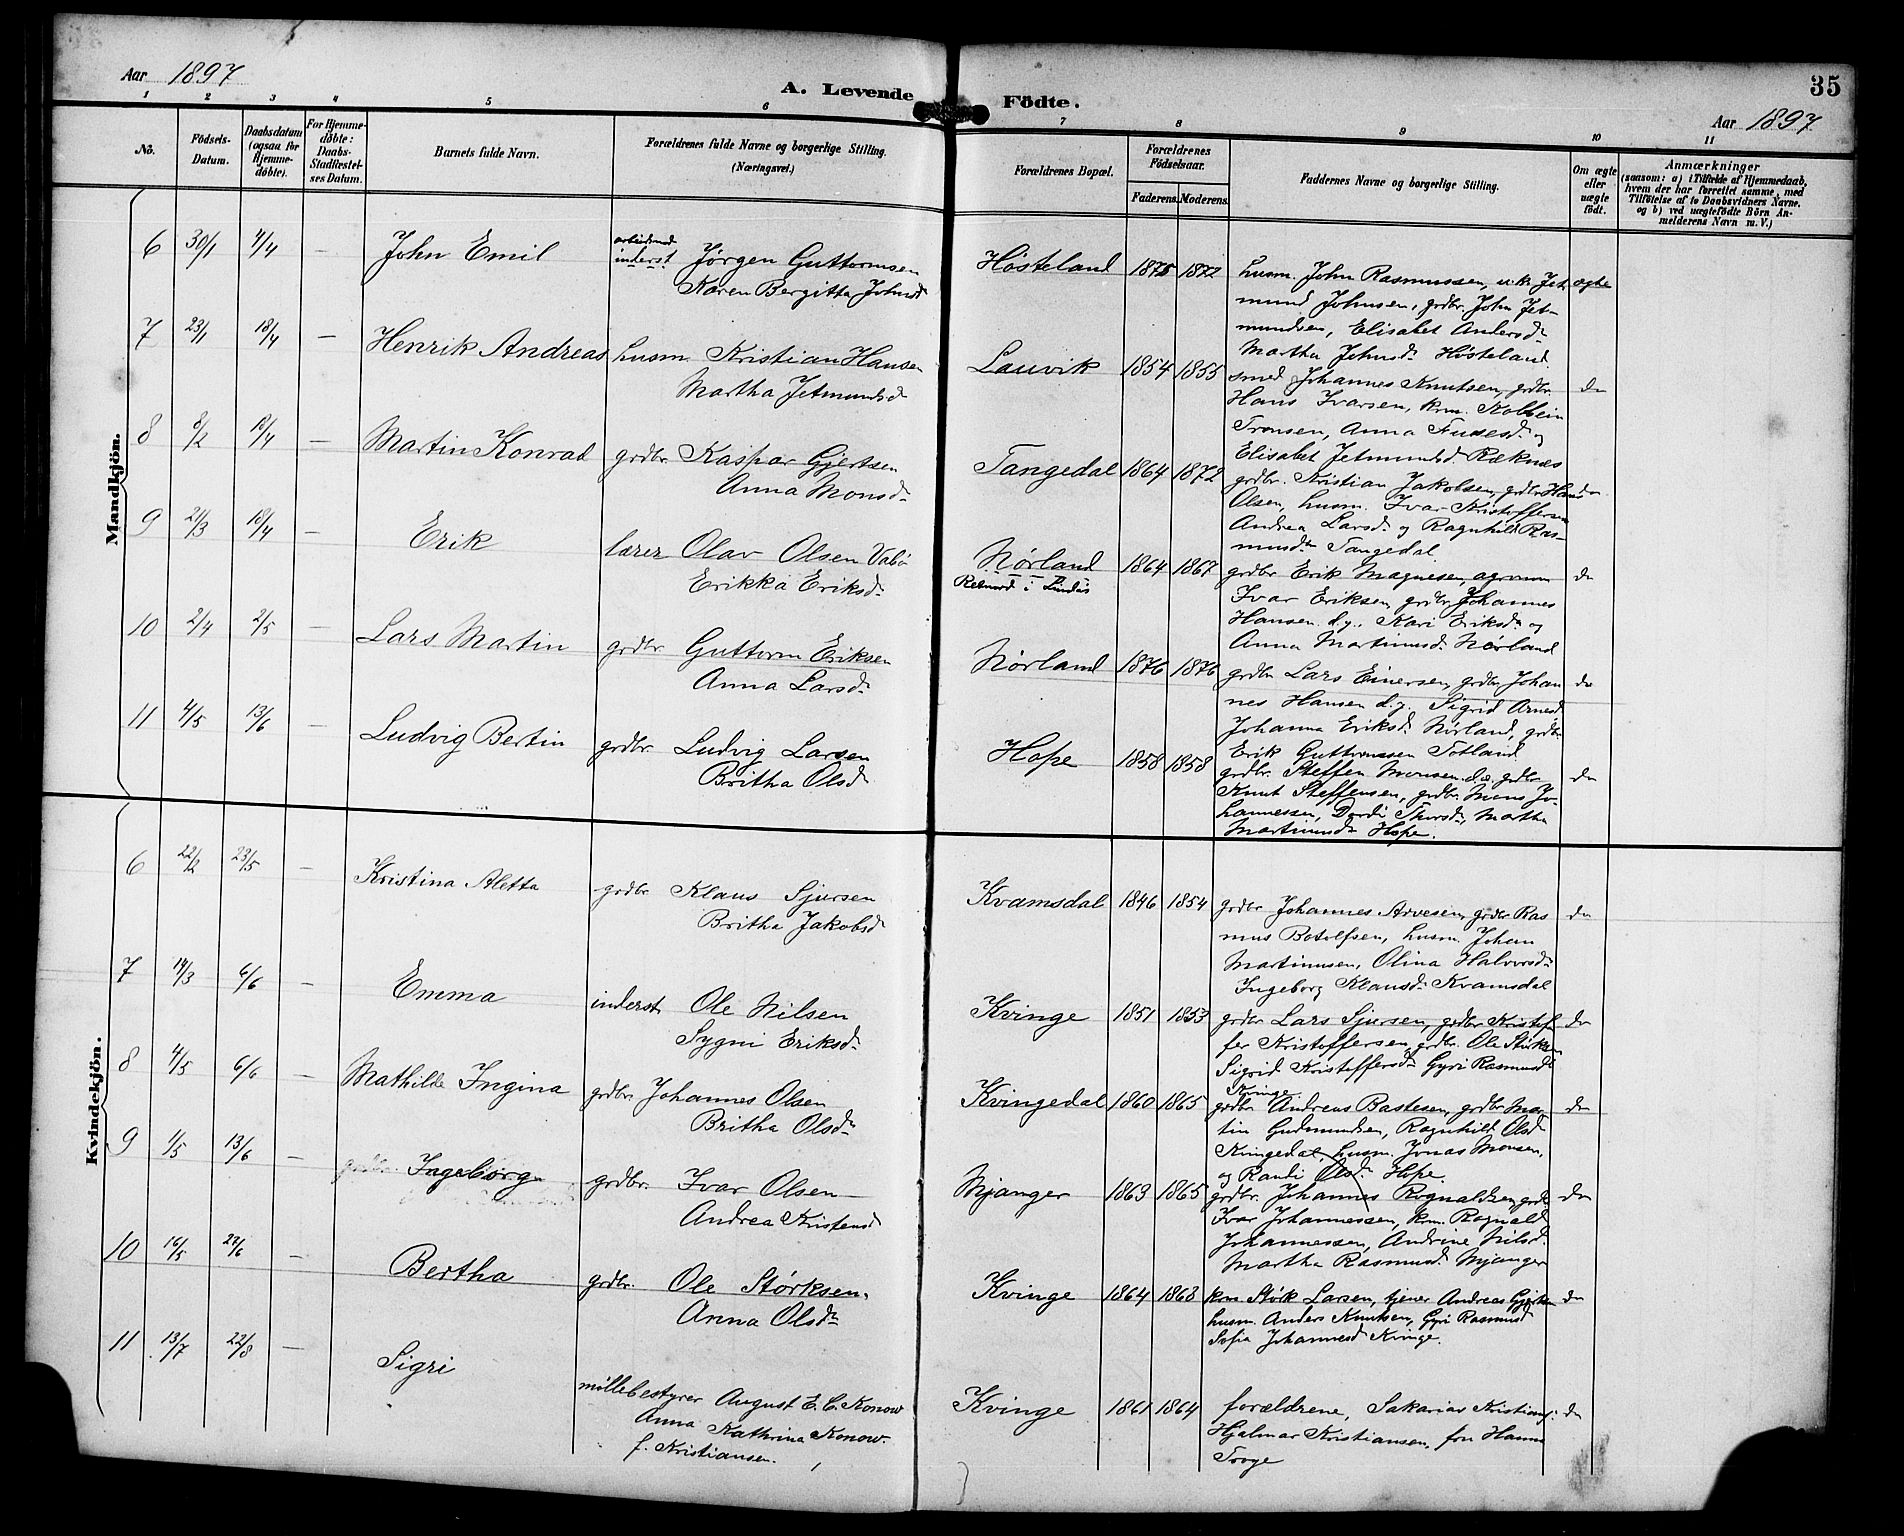 Aar 1897
A. Levende Födte.
35
Aar 1897
1 2 3 4 5 6 7 8 9 10 11
No.
Födsels-Datum.
Daabsdatum (ogsaa for Hjemme-döbte).
For Hjemme-döbte: Daabs-Stadfæstel-ses Datum.
Barnets fulde Navn.
Forældrenes fulde Navne og borgerlige Stilling. (Næringsvei.)
Forældrenes Bopæl.
Forældrenes Födselsaar.
Faderens. Moderens.
Faddernes Navne og borgerlige Stilling.
Om ægte eller uægte födt.
Anmærkninger
(saasom: a) i Tilfælde af Hjemmedaab,
hvem der har forrettet samme, med
Tilföielse af to Daabsvidners Navne.
og b) ved uægtefödte Börn An-
melderens Navn m. V.)
Mandkjön.
6 30/1 4/4 — John Emil
arbeidsmd inderst Jørgen Guttormsen
Karen Bergitta Johnsd
Høsteland 1875 1872
husm. John Rasmussen, u.k. Jet-
mund Johnsen, grdbr. John Jet-
mundsen, Elisabet Andersd.
Martha Johnsd. Høsteland
ægte
7 23/1 18/4 — Henrik Andreas
husm. Kristian Hansen
Martha Jetmundsd
Lauvik 1854 1855
smed Johannes Knutsen, grdbr.
Hans Ivarsen, krm. Kolbein
Tronsen, Anna Fusesd. og
Elisabet Jetmundsd. Ræknes
do
8 8/2 18/4 — Martin Konrad
grdbr. Kaspar Gjertsen
Anna Monsd.
Tangedal 1864 1872
grdbr. Kristian Jakobsen, grdbr Hans
Olsen, husm. Ivar Kristoffersen
Andrea Larsd. og Ragnhild Ras-
musd. Tangedal
do
9 21/3 18/4 — Erik
lærer Olav Olsen Vabø
Erikka Eriksd.
Nørland
Reknord i Lindås
1864 1867
grdbr Erik Magnesen, agronom
Ivar Eriksen, grdbr Johannes
Hansen d.y., Kari Eriksd. og
Anna Martinusd. Nørland
do
10 2/4 2/5 — Lars Martin
grdbr Guttorm Eriksen
Anna Larsd.
Nørland 1876 1876
grdbr Lars Einersen, grdbr Johan
nes Hansen d.y. Sigrid Arnesd.
Johanna Eriksd. Nørland, grdbr.
Erik Guttormsen Totland
do
11 4/5 13/6 — Ludvig Bertin
grdbr. Ludvig Larsen
Britha Olsd.
Hope 1858 1858
grdbr. Steffen Monsen d.æ. grdbr
Knut Steffensen, grdbr. Mons Jo-
hannessen, Dordi Thorsd., Martha
Martinusd. Hope.
do
Kvindekjön.
6 22/2 23/5 — Kristina Aletta
grdbr Klaus Sjursen
Britha Jakobsd
Kvamsdal 1846 1854
grdbr Johannes Arvesen, grdbr Ras
mus Botolfsen, husm. Johan
Martinusen, Olina Halvorsd.
Ingeborg Klausd. Kvamsdal
do
7 14/3 6/6 — Emma
inderst Ole Nilsen
Sygni Eriksd.
Kvinge 1851 1853
grdbr Lars Sjursen, grdbr Kristof
fer Kristoffersen, grdbr. Ole Størksen
Sigrid Kristoffersd. Gyri Rasmusd.
Kvinge
do
8 4/5 6/6 — Mathilde Ingina
grdbr. Johannes Olsen
Britha Olsd.
Kvingedal 1860 1865
grdbr Andreas Bastesen, grdbr Mar
tin Gudmundsen, Ragnhild Olsd.
Kvingedal, husm. Jonas Monsen,
og Randi Olsd. Hope.
do
9 1/5 13/6 — Ingeborg
grdbr. Ivar Olsen
Andrea Kristensd
Mjanger 1863 1865
grdbr. Johannes Rognaldsen, grdbr
Ivar Johannessen, krm. Rognald
Johannessen, Andrine Nilsd.
Martha Rasmusd. Mjanger
do
10 16/5 27/6 — Bertha
grdbr. Ole Størksen.
Anna Olsd.
Kvinge 1864 1868
krm Størk Larsen, tjener Andreas Gjertsen
husm. Anders Knutsen, Gyri Rasmusd
Sofia Johannesd Kvinge.
do
11 13/7 22/8 — Sigri
møllebestyrer August E. C. Konow
Anna Kathrina Konow.
f. Kristiansen.
Kvinge 1861 1864
forældrene, Sakarias Kristians.
Hjalmar Kristiansen, fru Hanna
Troye
do